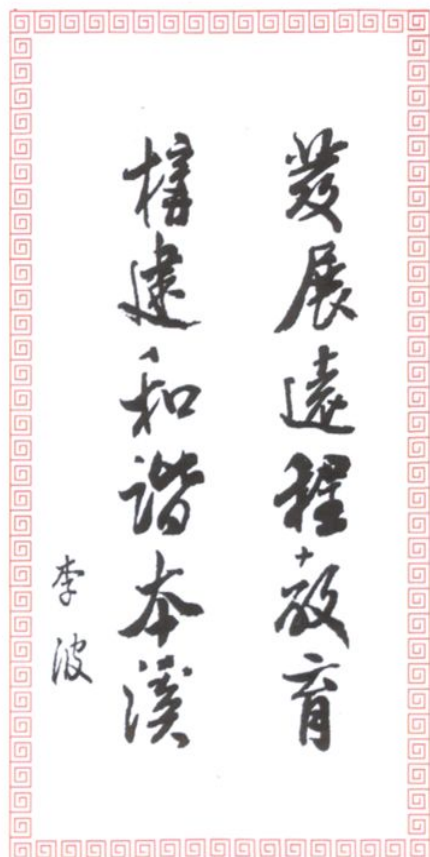 發展遠程教育
構建和谐本溪
李波